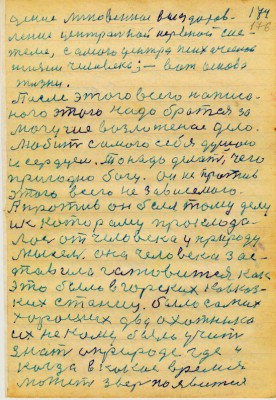 174
176
дение мгновенное выздоров-
ление центральной нервной сис-
теме, самого центра психических
жизни человека; — вот основа
жизни.
После этого всего написо-
ного этого надо братся за
могучие возложеное дело.
Любит самого себя душою
и сердцем. То надо делат, чего
пригодно богу. Он не против
этого всего не зависемого.
А против он был тому делу
к которому прислода-
лос от человека у природы
мысел. она человека зас-
тавила готовится как
это было в горских кавказ-
ких станиц. было самих
хороших два охотника
их не кому было учит
знат о природе где и
когда в какое время
может звер появится